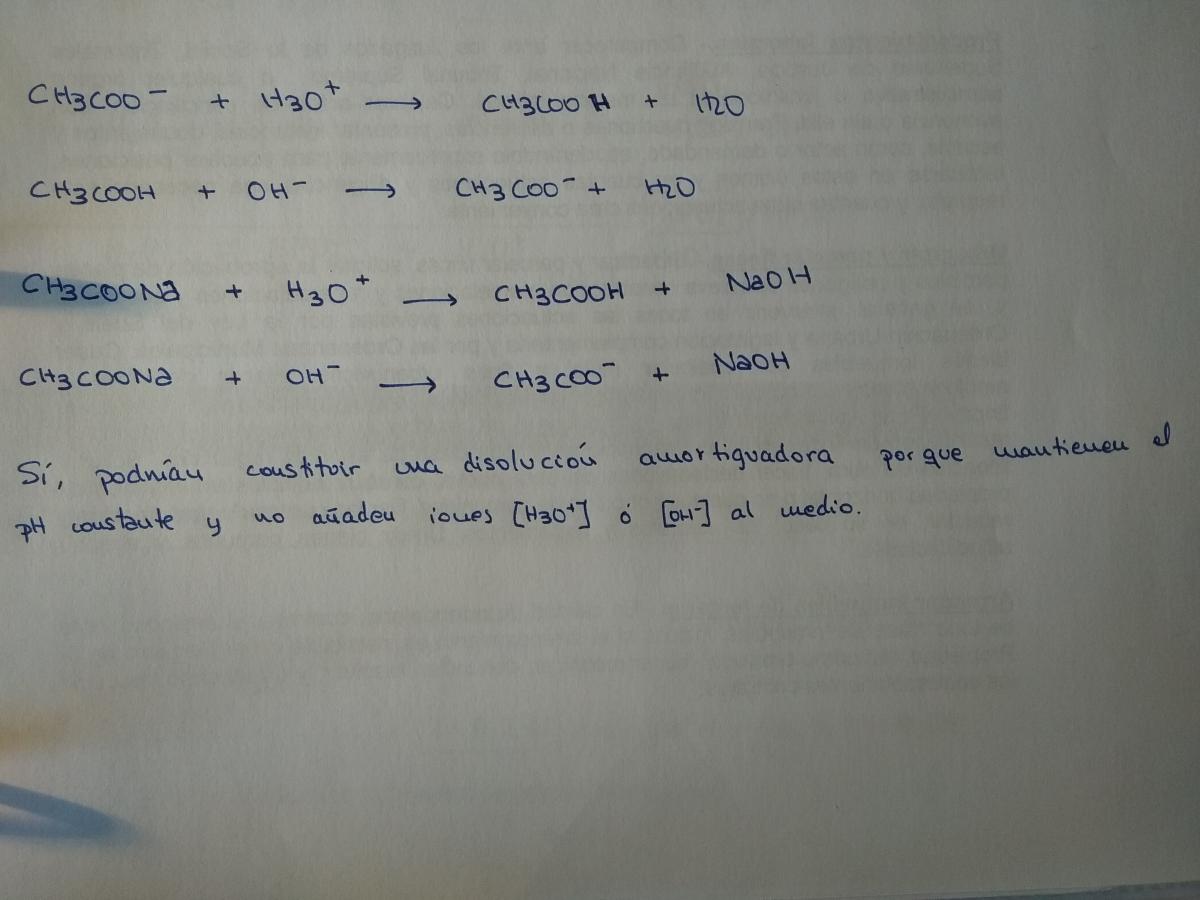 CH3COO⁻ + H3O⁺ → CH3COOH + H2O
CH3COOH + OH⁻ → CH3COO⁻ + H2O
CH3COONa + H3O⁺ → CH3COOH + NaOH
CH3COONa + OH⁻ → CH3COO⁻ + NaOH
Sí, podrían constituir una disolución amortiguadora porque mantienen el
pH constante y no añaden iones [H3O⁺] ó [OH⁻] al medio.